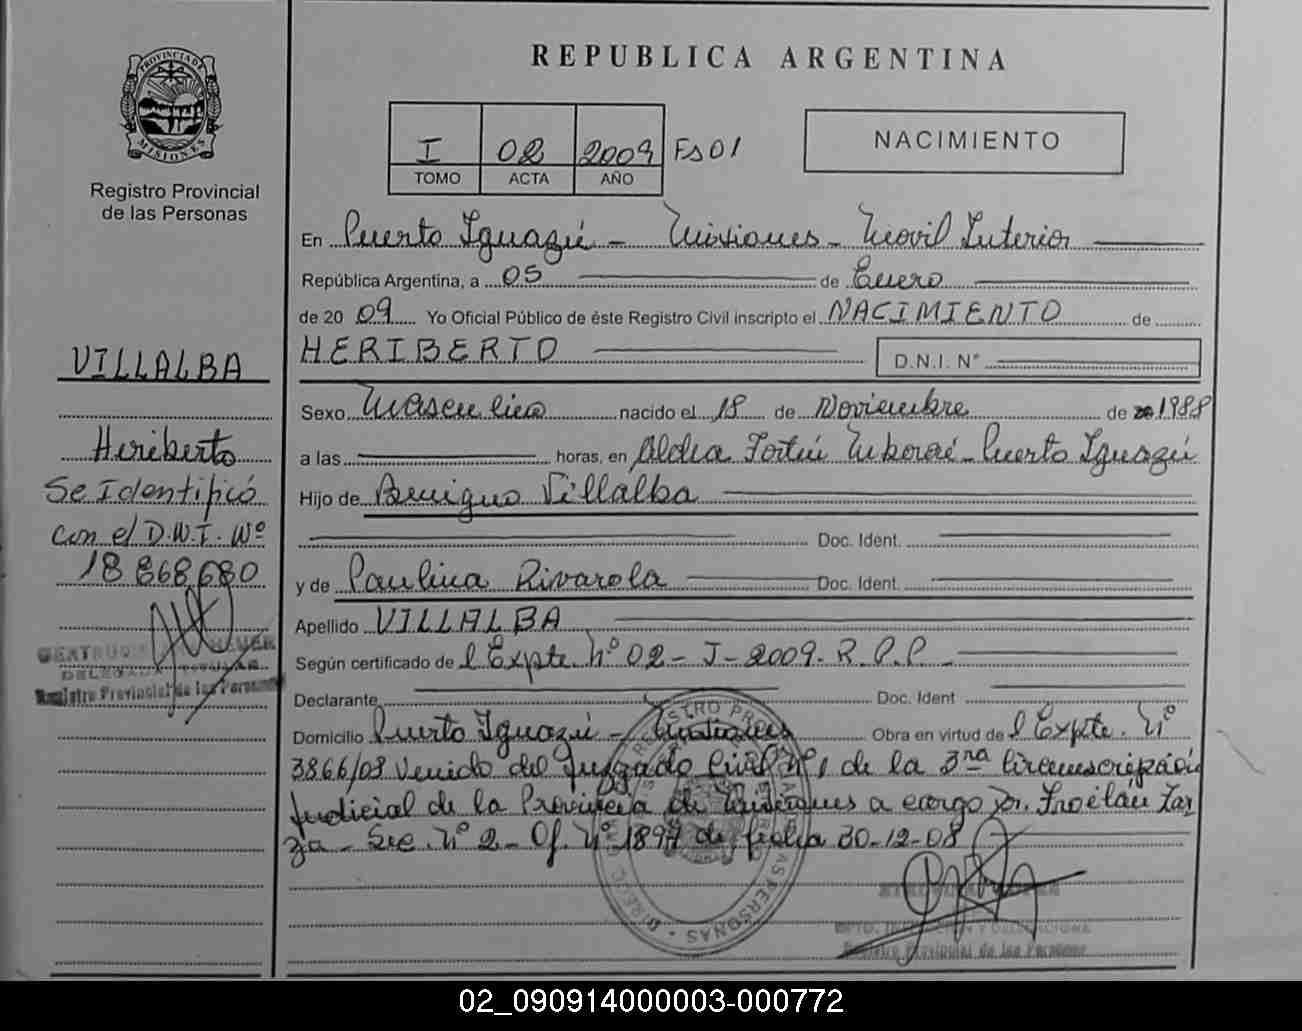 PROVINCIA DE
MISIONES
Registro Provincial
de las Personas
VILLALBA
Heriberto
Se Identificó
con el D.N.I. Nº
18 868,680
DELEGADA
Registro Provincial de las Personas
REPUBLICA ARGENTINA
I 02 2009 Fs 01
TOMO ACTA AÑO
NACIMIENTO
En Puerto Iguazú - Misiones - Movil Interior
República Argentina, a 05 de Enero
de 20 09 Yo Oficial Público de éste Registro Civil inscripto el NACIMIENTO de
HERIBERTO D.N.I. N°
Sexo Masculino nacido el 18 de Noviembre de 1988
a las horas, en Aldea Fortín Mbororé - Puerto Iguazú
Hijo de Benigno Villalba
Doc. Ident.
y de Paulina Rivarola Doc. Ident.
Apellido VILLALBA
Según certificado de Expte Nº 02 - J - 2009. R.P.P.
Declarante Doc. Ident
Domicilio Puerto Iguazú - Misiones Obra en virtud de Expte. Nº
3866/08 Venido del Juzgado Civil Nº 1 de la 3ra Circunscripción
Judicial de la Provincia de Misiones a cargo Dr. Froelán Zar
za - Sec. Nº 2 - Of. Nº 1897 de fecha 30-12-08
Registro Provincial de las Personas
02_090914000003-000772